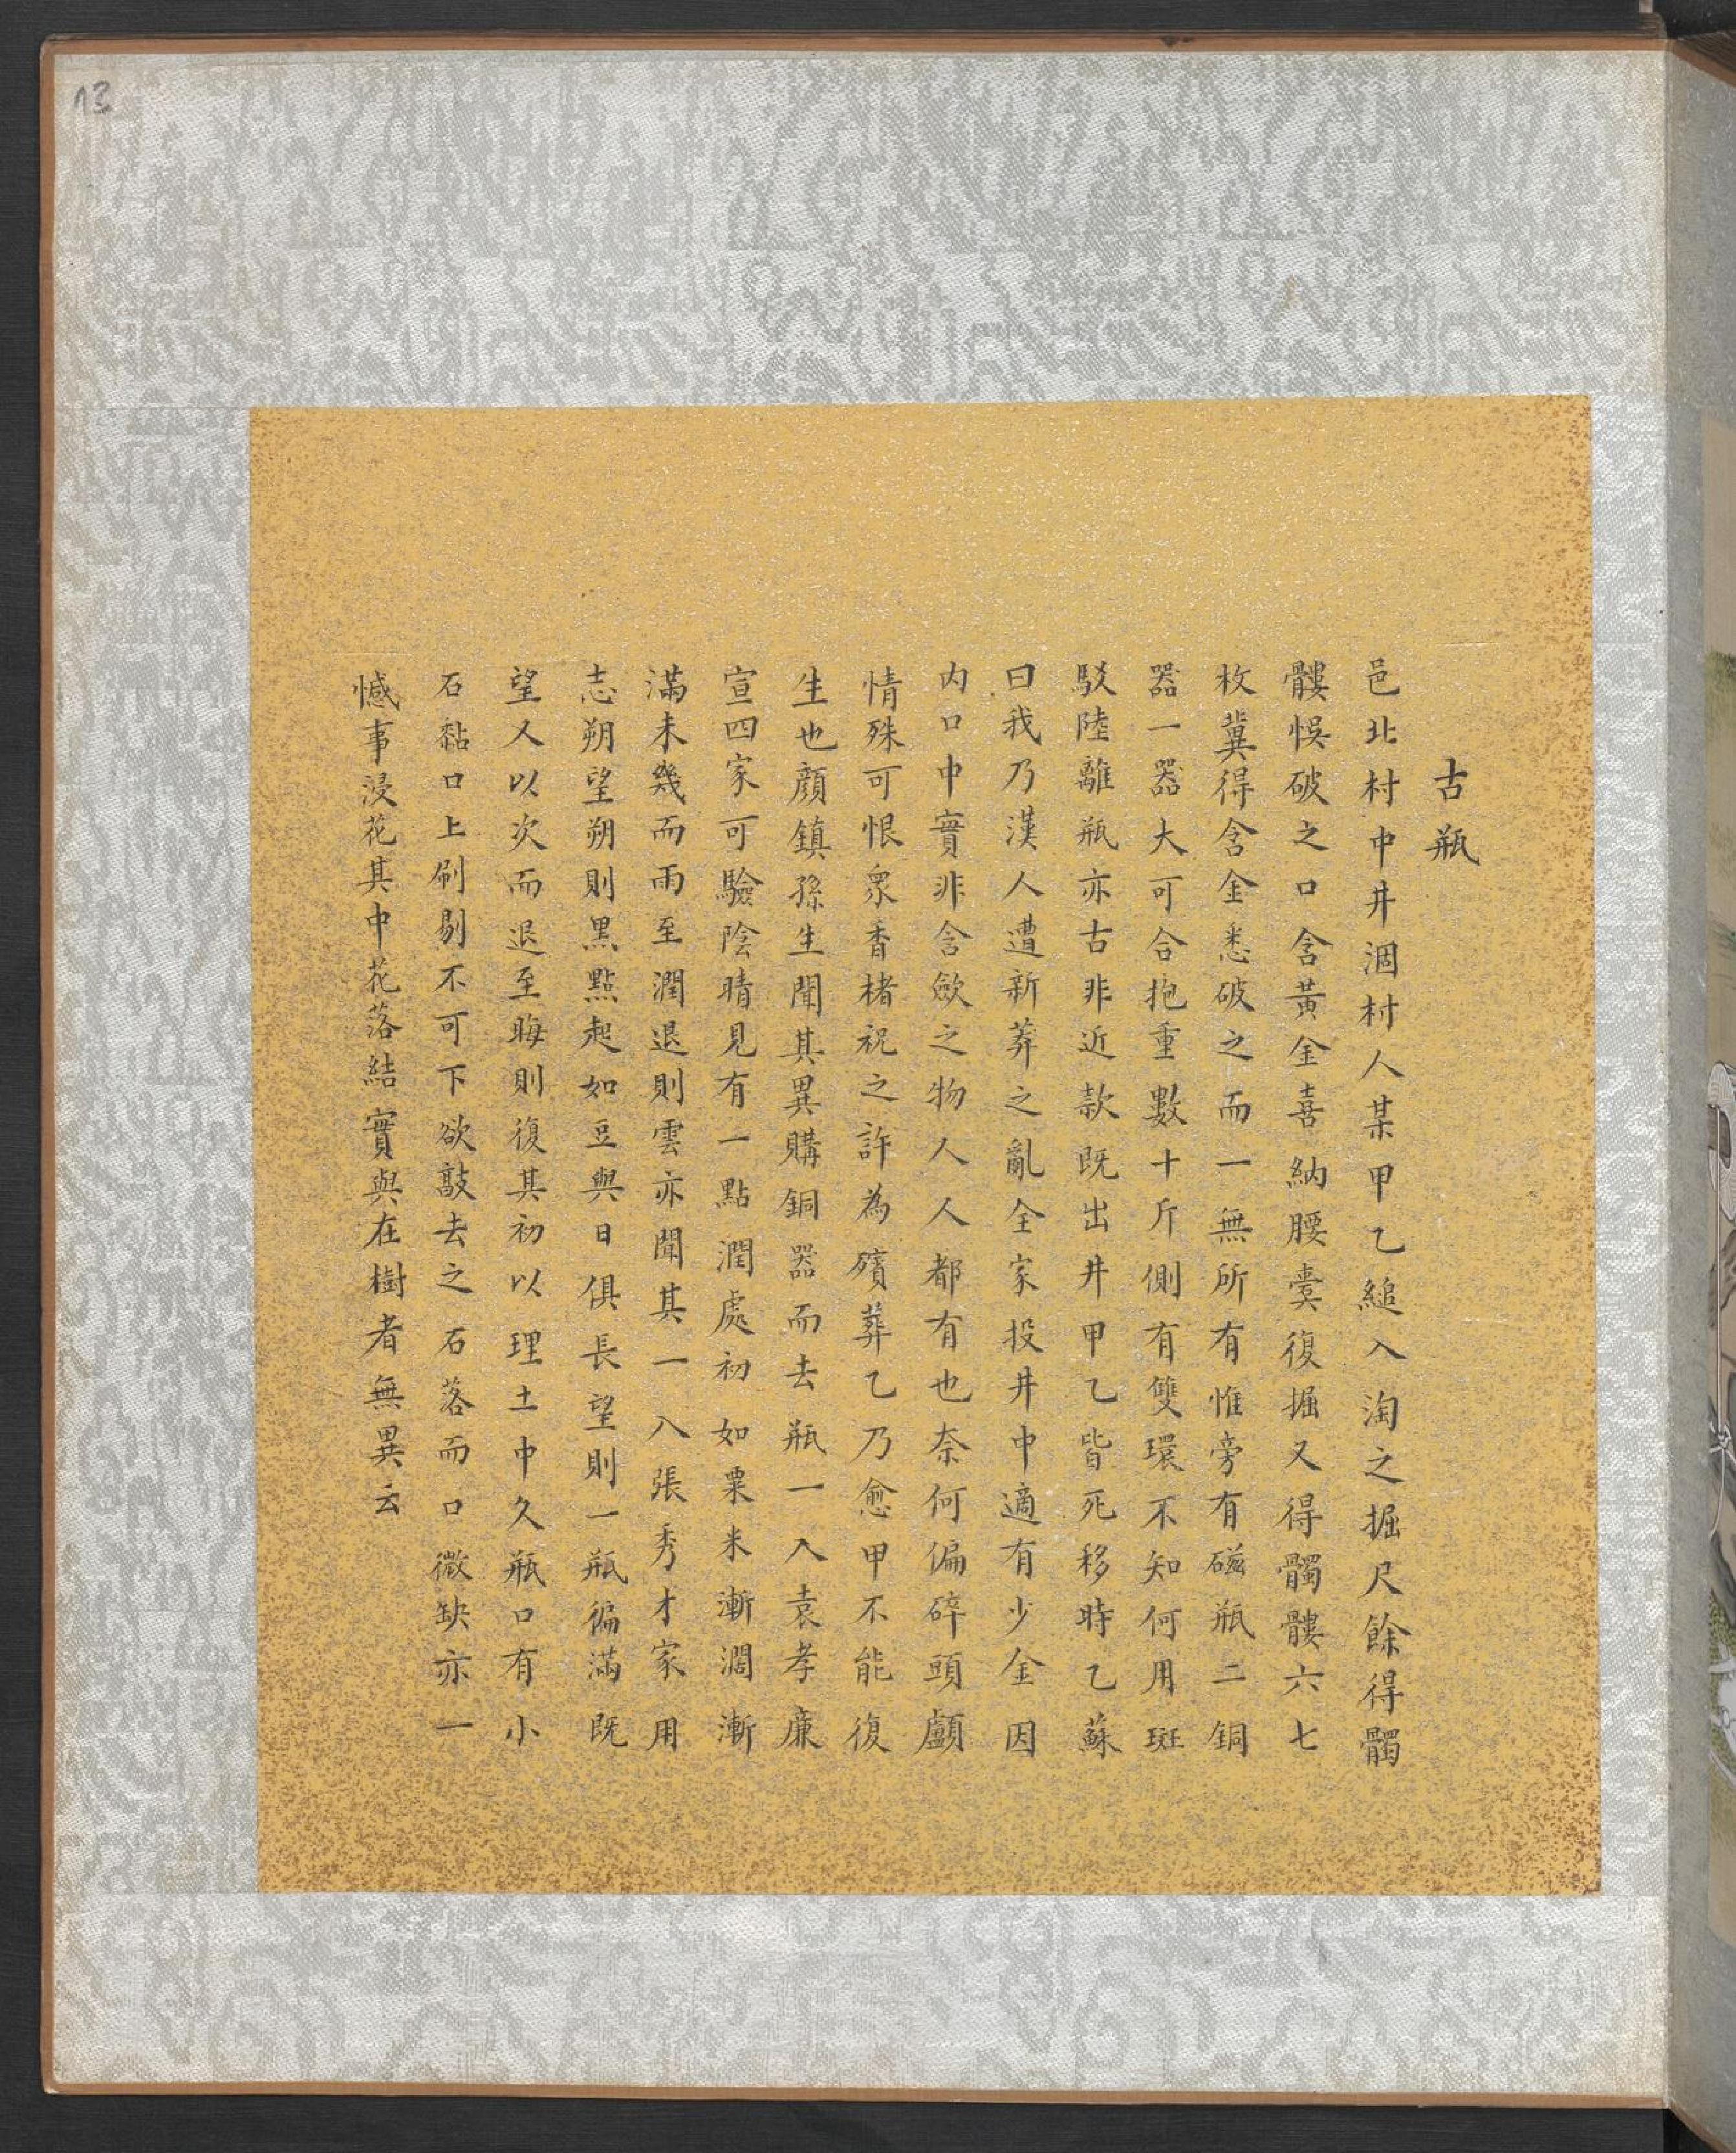 古瓶
邑北村中井涸村人某甲乙縋入淘之掘尺餘得髑
髏悞破之口含黃金喜納腰橐復掘又得髑髏六七
枚冀得含金悉破之而一無所有惟旁有磁瓶二銅
器一器大可合抱重數十斤側有雙環不知何用斑
駁陸離瓶亦古非近款既出井甲乙皆死移時乙蘇
曰我乃漢人遭新莽之亂全家投井中適有少金因
內口中實非含歛之物人人都有也奈何偏碎頭顱
情殊可恨眾香楮祝之許為殯葬乙乃愈甲不能復
生也顏鎮孫生聞其異購銅器而去瓶一入袁孝廉
宣四家可驗陰晴見有一點潤處初如粟米漸濶漸
滿未幾而雨至潤退則雲亦開其一入張秀才家用
志朔望朔則黑點起如豆與日俱長望則一瓶徧滿既
望又以次而退至晦則復其初以理土中久瓶口有小
石黏口上刷剔不可下欲敲去之石落而口微缺亦一
憾事浸花其中花落結實與在樹者無異云
13